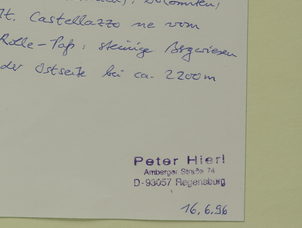 Dolomiten,
Mt. Castellazzo ne vom
Rolle-Paß, steinige Bergwiesen
der Ostseite bei ca. 2200m
Peter Hierl
Amberger Straße 74
D-93057 Regensburg
16.6.96